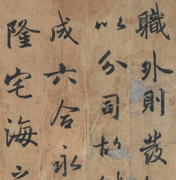 職外則發
以分司故
成六合永
隆宅海之